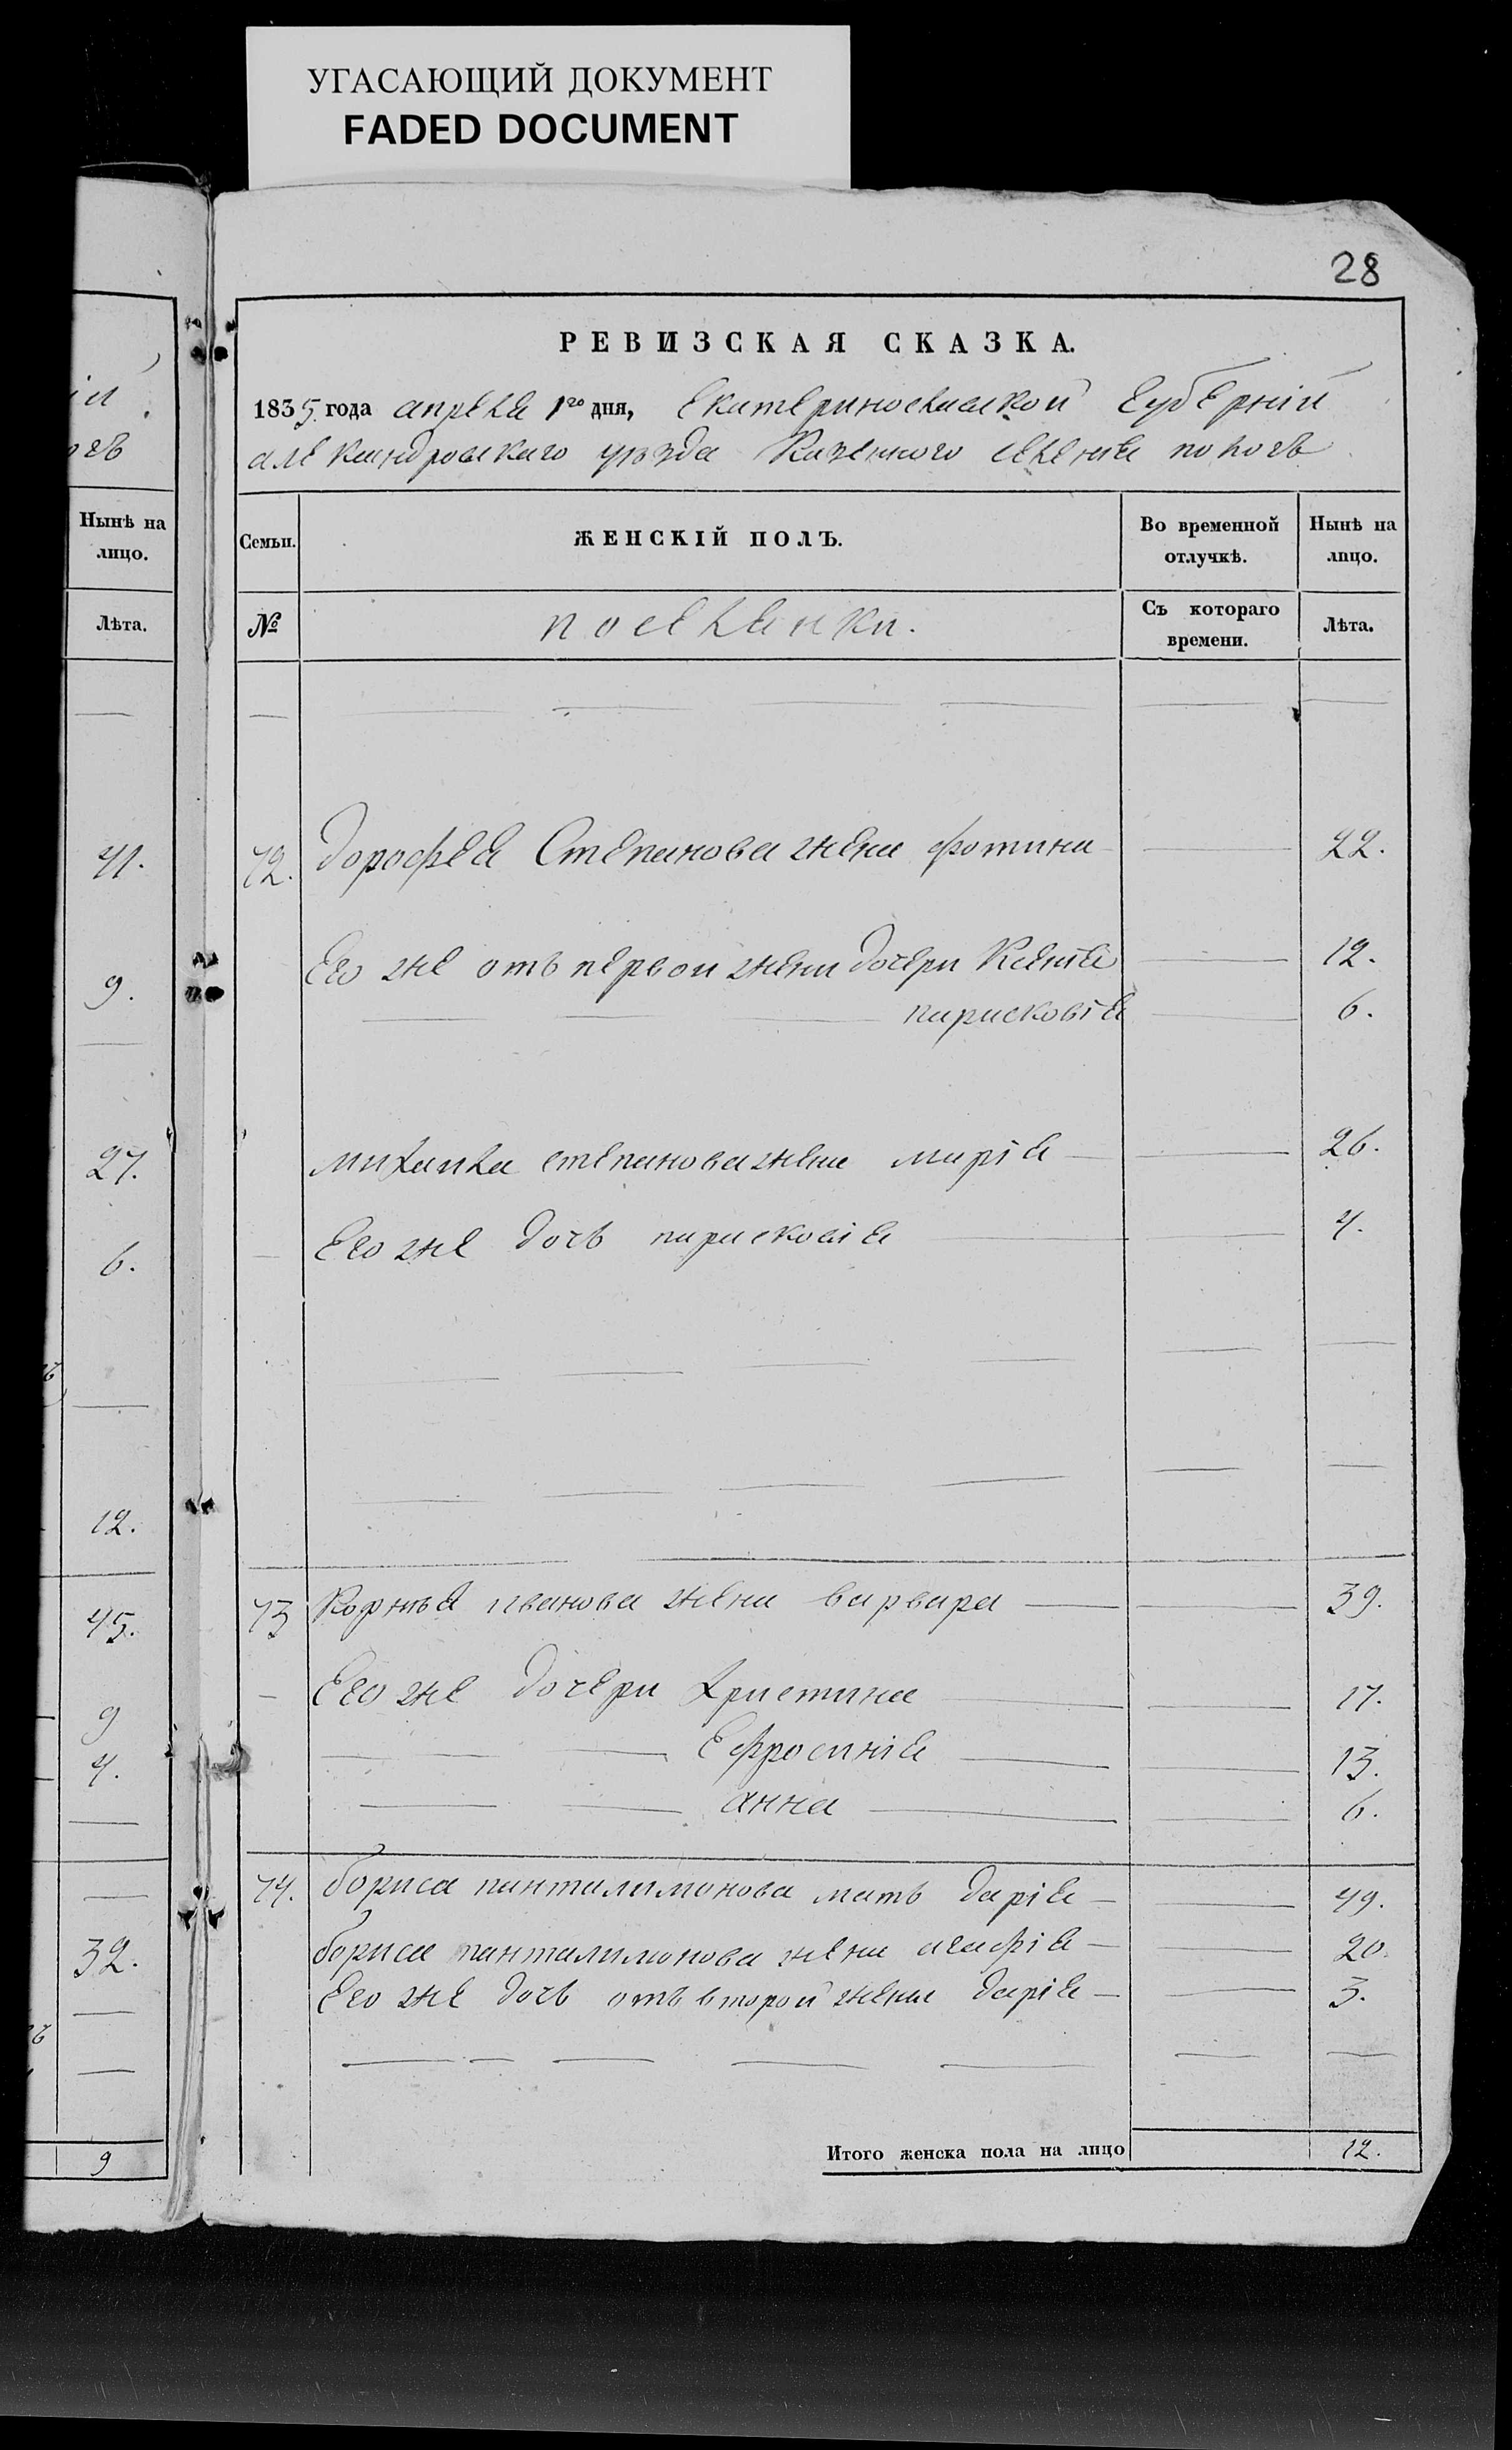 УГАСАЮЩИЙ ДОКУМЕНТ
FADED DOCUMENT
28
РЕВИЗСКАЯ СКАЗКА.
1835 года апреля 1го дня, Екатеринославской Губерній
александровскаго уезда Казенного селения пологъ
Нынѣ на лицо.
Лѣта.
41.
9.
27.
6.
12.
45.
9
4.
32.
9
Семьи. ЖЕНСКІЙ ПОЛЪ. Во временной отлучкѣ. Нынѣ на лицо.
№ поселянки. Съ котораго времени. Лѣта.
72. Дорофея Степанова жена фотина 22.
Его же отъ первои жени дочери Ксенія 12.
парасковія 6.
михаила степанова жена марія 26.
Его же дочь парасковія 4.
73 Корнѣя иванова жена варвара 39.
Его же дочери Христина 17.
Ефросинія 13.
анна 6.
74. бориса пантилимонова мать дарія 49.
бориса пантилимонова жена агафія 20.
Его же дочь отъ второй жени дарія 3.
Итого женска пола на лицо 12.